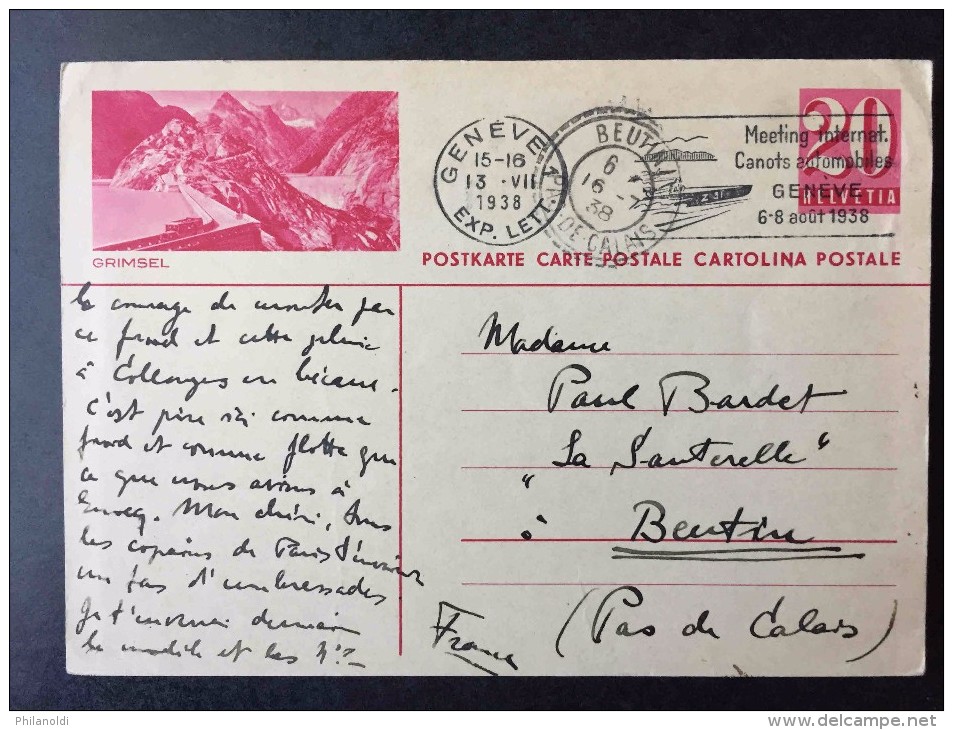 20
HELVETIA
GENÈVE
15-16
13 · VII
1938
EXP. LETT.
BEUTIN
6
16 -7
38
PAS-DE-CALAIS
Meeting internat.
Canots automobiles
GENÈVE
6-8 août 1938
GRIMSEL
POSTKARTE CARTE POSTALE CARTOLINA POSTALE
le courage de monter par
ce froid et cette pluie
à Collonges en bécane.
C'est pire ici comme
froid et comme flotte que
ce que nous avions à
Mon chéri, tous
les copains de Paris t'envoient
un tas d'embrassades
Je t'enverrai demain
le modèle et les
Madame
Paul Bardet
"La Sauterelle"
à Beutin
(Pas de Calais)
France
Philanoldi
www.delcampe.net